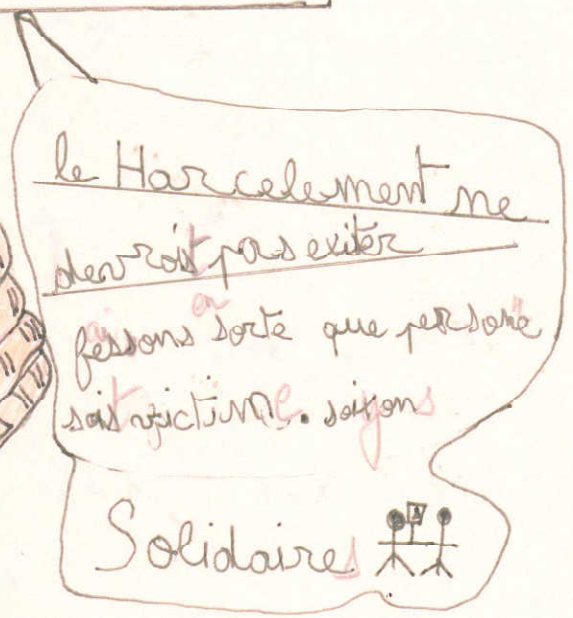 le Harcelement ne
devrait pas exiter
faissons en sorte que personne
soit victime. soiyons
Solidaires